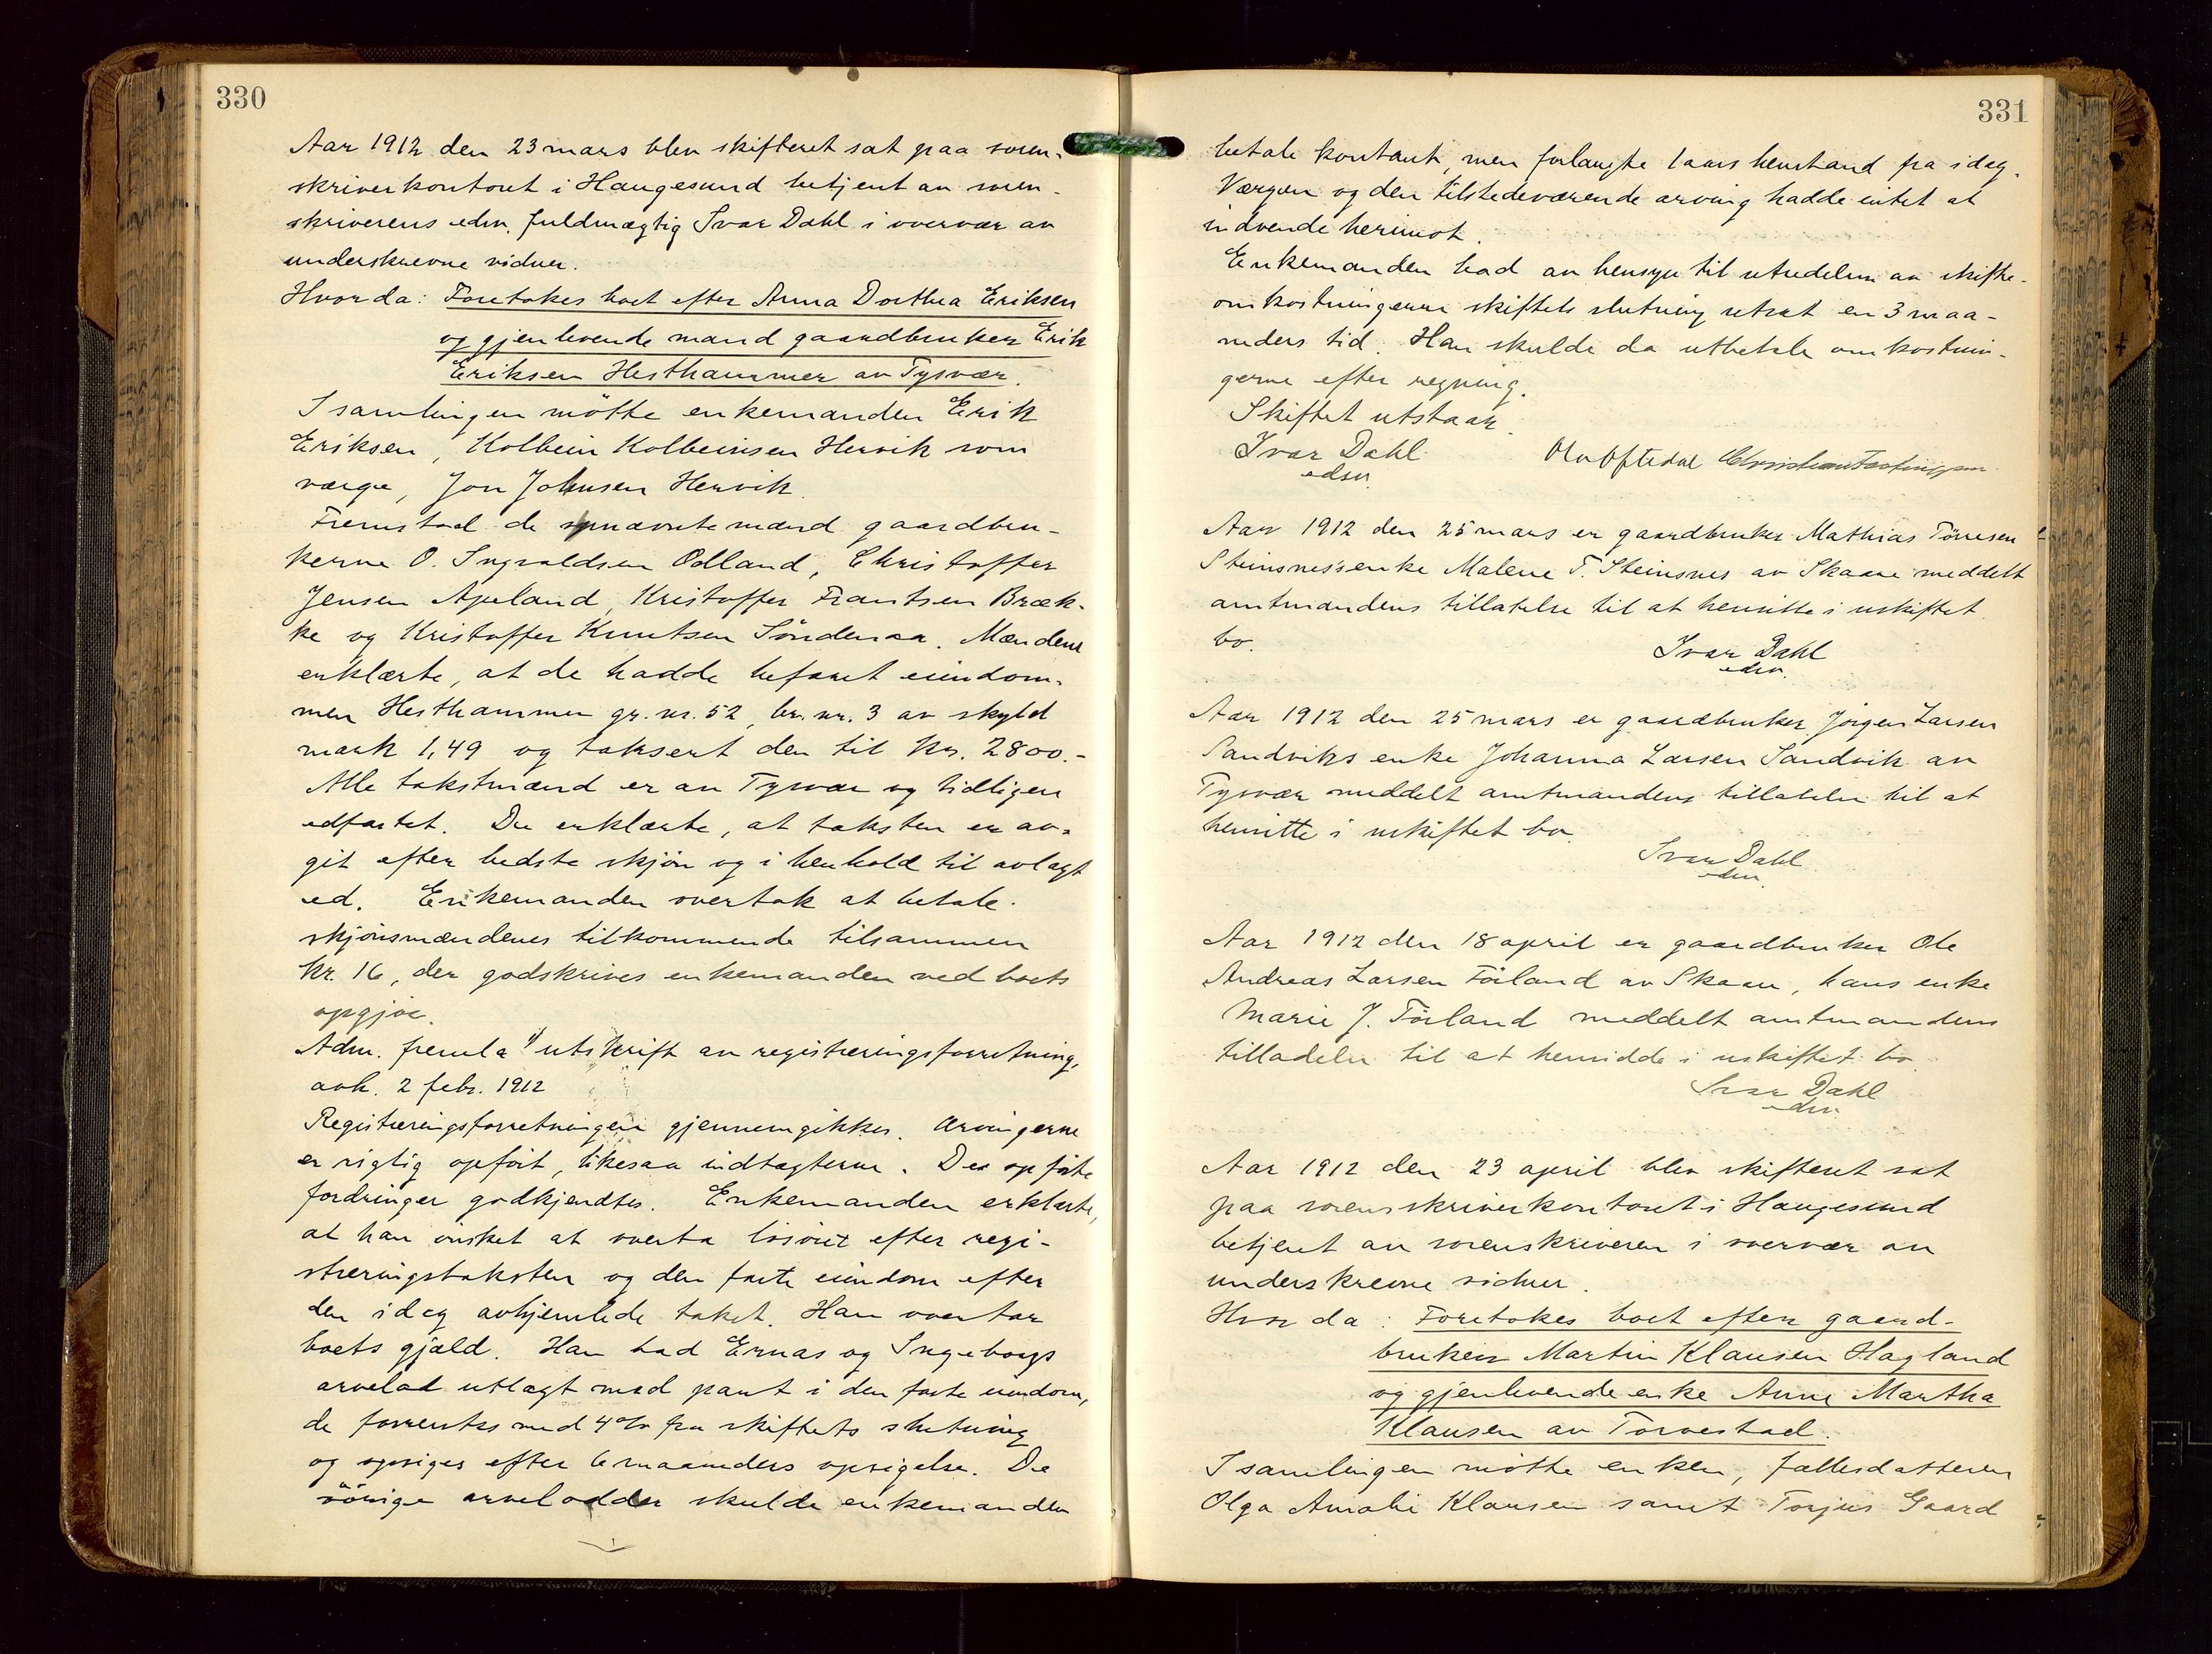 330
Aar 1912 den 23 mars blev skifteret sat paa soren-
skriverkontoret i Haugesund betjent av soren-
skriverens edsv. fuldmægtig Ivar Dahl i overvær av
underskrevne vidner.
Hvorda: Foretokes boet efter Anna Dorthea Eriksen
og gjenlevende mand gaardbruker Erik
Eriksen Hesthammer av Tysvær.
I samlingen mötte enkemanden Erik
Eriksen, Kolbein Kolbeinsen Hervik som
værge, Jon Johnsen Hervik.
Fremstod de opnævnte mænd gaardbru-
kerne O. Ingvaldsen Odland, Christoffer
Jensen Apeland, Kristoffer Frantsen Bræk-
ke og Kristoffer Knutsen Söndenaa. Mændene
erklærte, at de hadde befaret eiendom-
men Hesthammer gr. nr. 52, br. nr. 3 av skyld
mark 1,49 og taksert den til kr. 2800.-
Alle takstmænd er av Tysvær og tidligere
edfæstet. De erklærte, at taksten er av-
git efter bedste skjön og i henhold til avlagt
ed. Enkemanden overtok at betale
skjönsmændenes tilkommende tilsammen
kr. 16, der godskrives enkemanden ved boets
opgjör.
Adm. fremla 1) utskrift av registreringsforretning,
avh. 2 febr. 1912
Registreringsforretningen gjennemgikkes. Arvingerne
er rigtig opfört, likesaa indtægterne. De opförte
fordringer godkjendtes. Enkemanden erklærte,
at han önsket at overta lösöret efter regi-
streringstaksten og den faste eiendom efter
den idag avhjemlede takst. Han overtar
boets gjæld. Han bad Ernas og Ingeborgs
arvelod utlagt med pant i den faste eiendom,
de forrentes med 4% fra skiftets slutning
og opsiges efter 6 maaneders opsigelse. De
övrige arvelodder skulde enkemanden
331
betale kontant, men forlangte 1 aars henstand fra idag.
Værgen og den tilstedeværende arving hadde intet at
indvende herimot.
Enkemanden bad av hensyn til utredelsen av skifte-
omkostningerne skiftets slutning utsat en 3 maa-
neders tid. Han skulde da utbetale omkostnin-
gerne efter regning.
Skiftet utstaar.
Ivar Dahl Ola Oftedal Christian
edsv.
Aar 1912 den 25 mars er gaardbruker Mathias Törresen
Steinsnes's enke Malene T. Steinsnes av Skaare meddelt
amtmandens tillatelse til at hensitte i uskiftet
bo.
Ivar Dahl
edsv.
Aar 1912 den 25 mars er gaardbruker Jörgen Larsen
Sandviks enke Johanna Larsen Sandvik av
Tysvær meddelt amtmandens tillatelse til at
hensitte i uskiftet bo.
Ivar Dahl
edsv.
Aar 1912 den 18 april er gaardbruker Ole
Andreas Larsen Förland av Skaare, hans enke
Marie J. Förland meddelt amtmandens
tilladelse til at hensidde i uskiftet bo.
Ivar Dahl
edsv.
Aar 1912 den 23 april blev skifteret sat
paa sorenskriverkontoret i Haugesund
betjent av sorenskriveren i overvær av
underskrevne vidner.
Hvor da: Foretokes boet efter gaard-
bruker Martin Klausen Hagland
og gjenlevende enke Anne Martha
Klausen av Torvestad.
I samlingen mötte enken, fællesdatteren
Olga Amalie Klausen samt Torjus Gaard